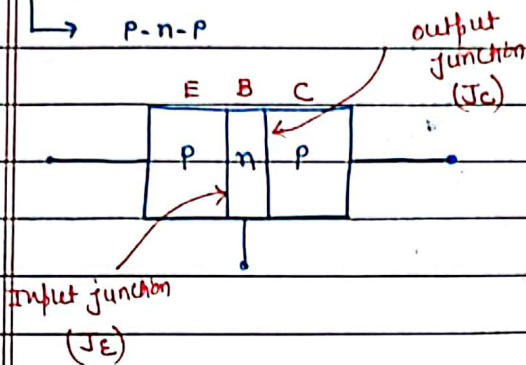 p-n-p
output
junction
(Jc)
E B C
P n P
Input junction
(JE)